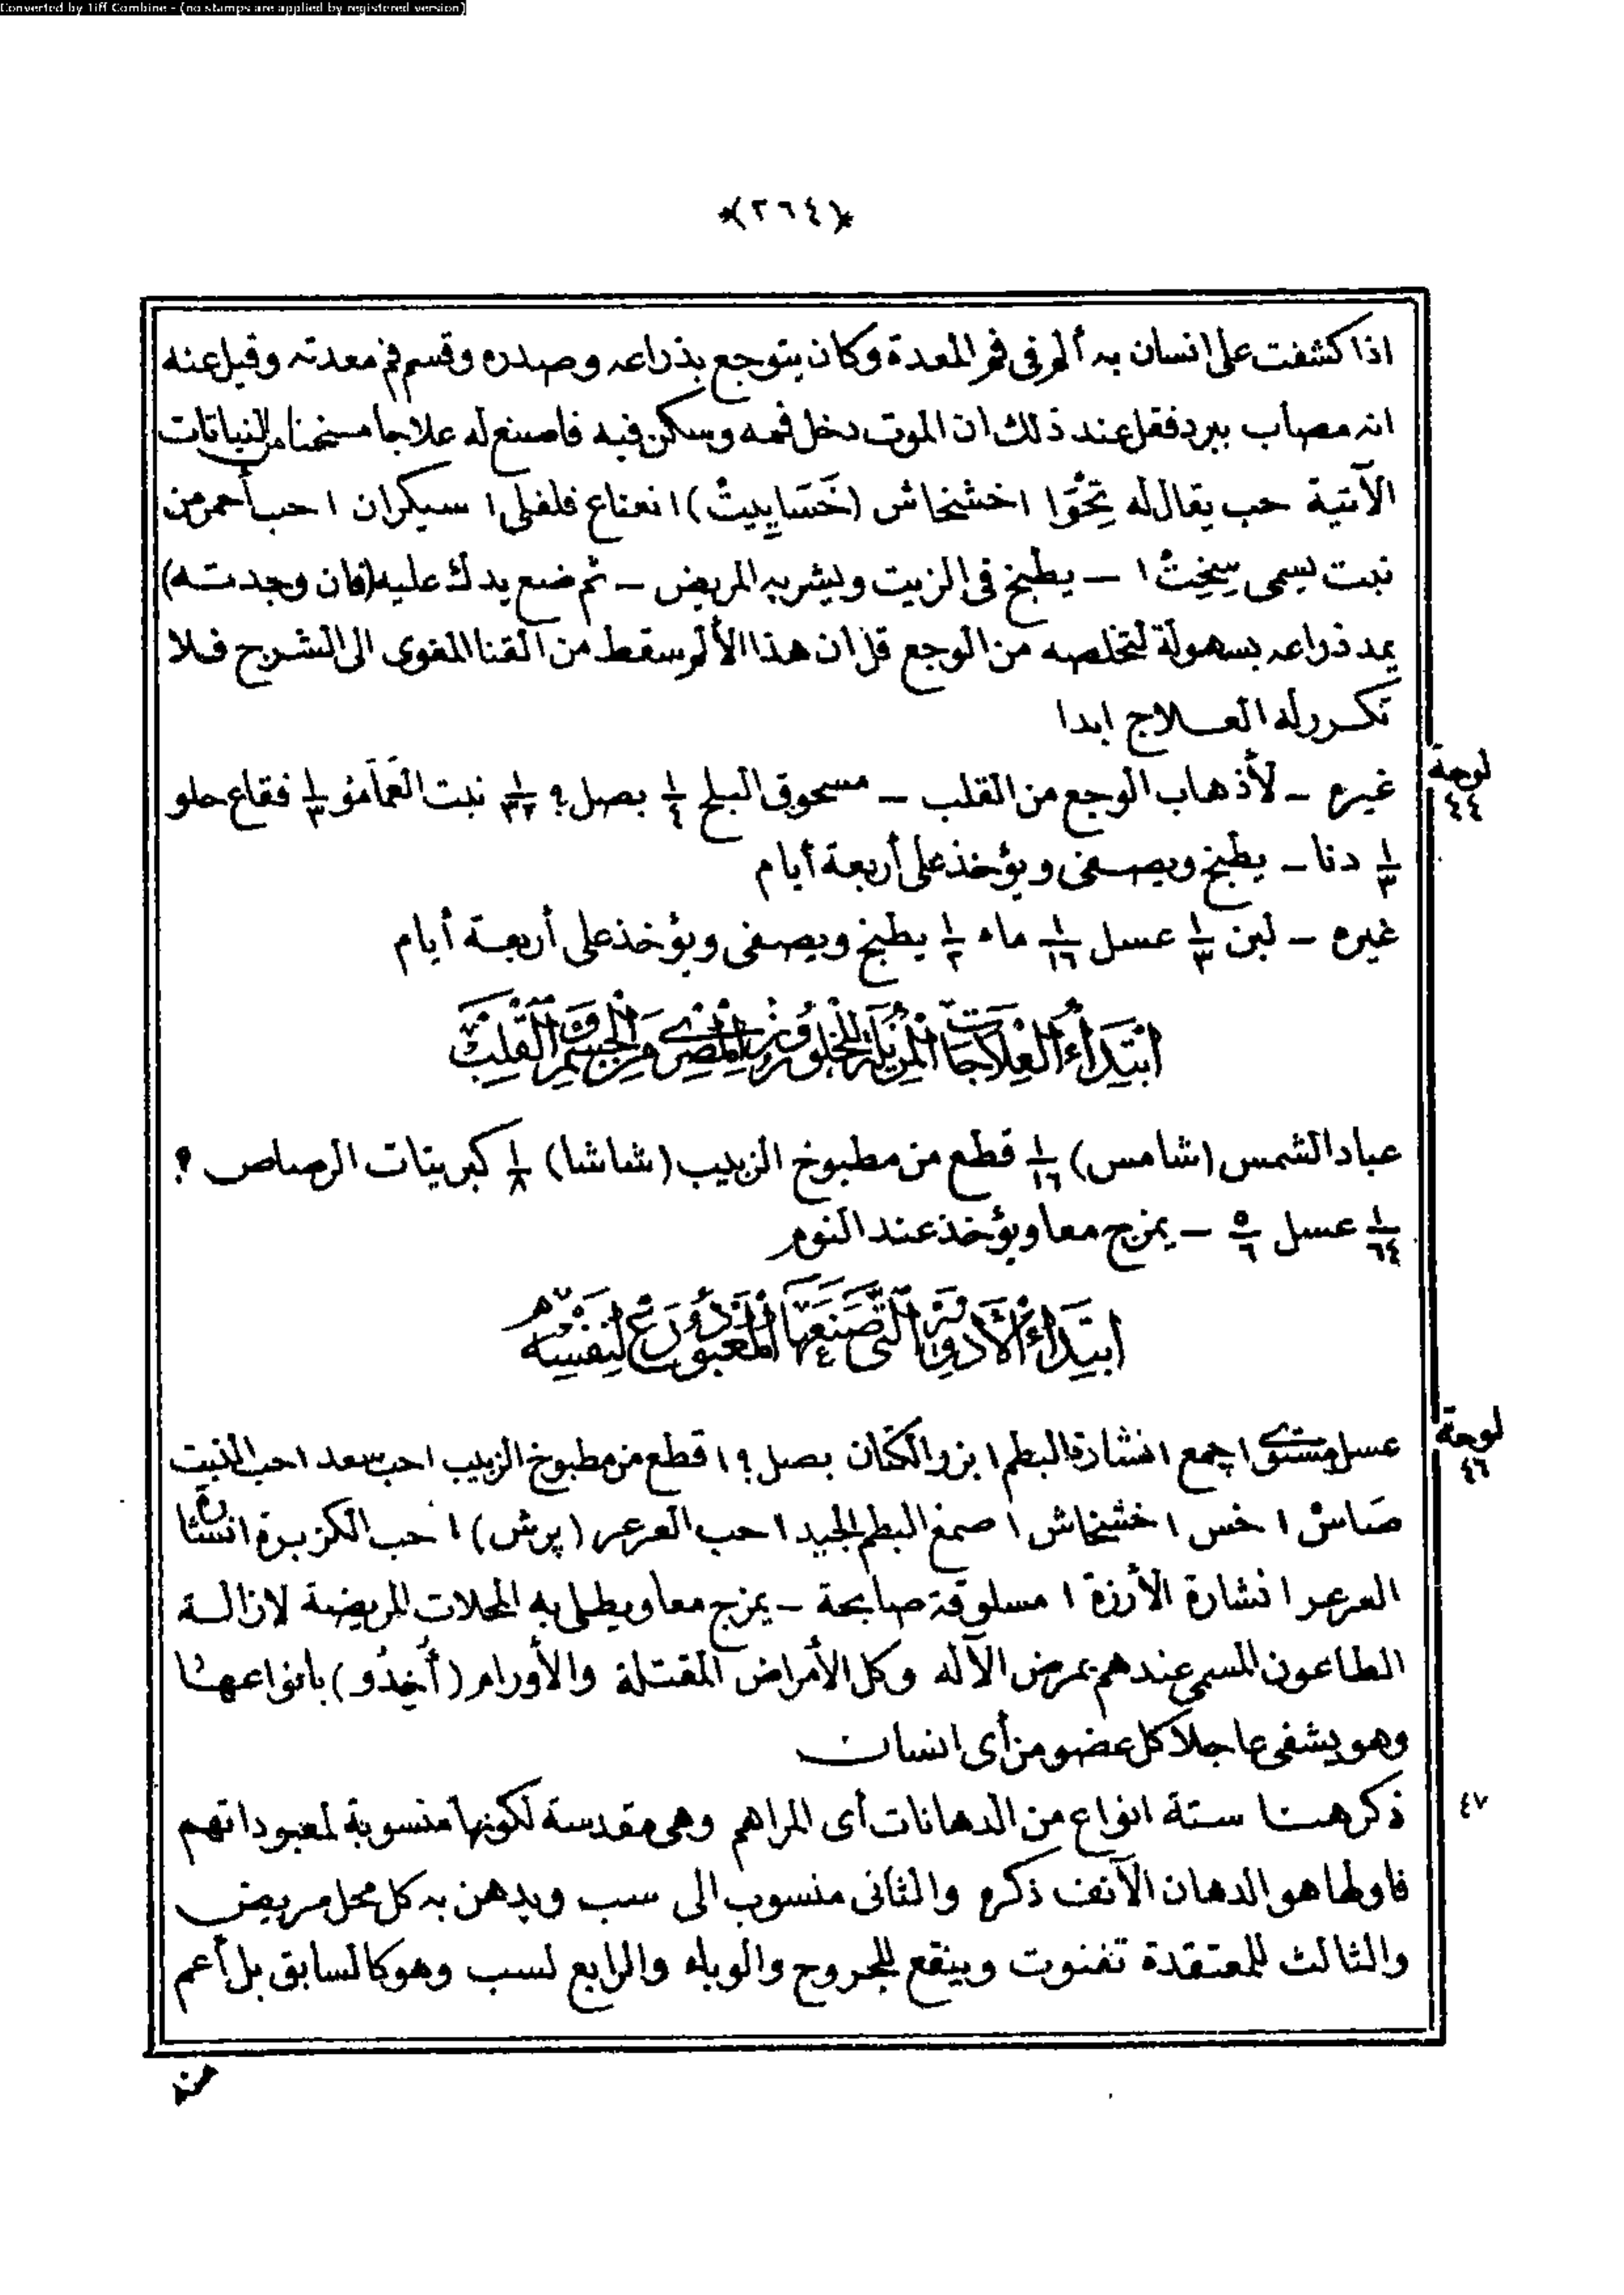 Converted by Tiff Combine - (no stamps are applied by registered version)
*(٢٦٤)*
اذا كشفت على انسان به ألم فى فم المعدة وكان يتوجع بذراعه وصدره وقسم فم معدته وقيل عنه
انه مصاب ببرد فقل عند ذلك ان الموت دخل فمه وسكن فيه فاصنع له علاجا مسخنا من النباتات
الآتية حب يقال له تِحُوَا ١ خشخاش (خَسَايِيتْ) ١ نعناع فلفلى ١ سيكران ١ حب أحمر من
نبت يسمى سِخِتْ ١ — يطبخ فى الزيت ويشربه المريض — ثم ضع يدك عليه (فان وجدته)
يمد ذراعه بسهولة لتخلصه من الوجع قل ان هذا الألم سقط من القنا المغوى الى الشرج فلا
تكرر له العلاج ابدا
لوحة ٤٤
غيره — لأذهاب الوجع من القلب — مسحوق البلح ١/٤ بصل ؟ ١/٣٢ نبت العَمَامُو ١/٣ فقاع حلو
١/٣ دنا — يطبخ ويصفى ويؤخذ على أربعة أيام
غيره — لبن ١/٣ عسل ١/١٦ ماء ١/٢ يطبخ ويصفى ويؤخذ على أربعة أيام
ابْتِدَاءُ الْعِلَاجَاتِ الْمُزِيلَةِ لِلْخُلُو وَ الْمُضِرِّ مِنَ الْجِسْمِ وَ الْقَلْبِ
عباد الشمس (شامس) ١/١٦ قطع من مطبوخ الزبيب (شاشا) ١/٨ كبريتات الرصاص ؟
١/٦٤ عسل ٥/٦ — يمزج معا ويؤخذ عند النوم
ابْتِدَاءُ الْأَدْوِيَةِ الَّتِى صَنَعَهَا الْمَعْبُودُ رَعْ لِنَفْسِهِ
لوحة ٤٦
عسل مستوى ١ جمع ١ نشارة البطم ١ بزر الكتان بصل ؟ ١ قطع من مطبوخ الزبيب ١ حب سعد ١ حب النبت
صَاسْ ١ خس ١ خشخاش ١ صمغ البطم الجيد ١ حب العرعر (پرش) ١ حب الكزبرة ١ نشارة
العرعر ١ نشارة الأرزة ١ مسلوقة صابحة — يمزج معا ويطلى به المحلات المريضة لازالة
الطاعون المسمى عندهم بمرض الآله وكل الأمراض المقتلة والأورام (أُخِدُو) بانواعها
وهو يشفى عاجلا كل عضو من أى انسان
٤٧
ذكر هنا ستة انواع من الدهانات أى المراهم وهى مقدسة لكونها منسوبة لمعبوداتهم
فاولها هو الدهان الآنف ذكره والثانى منسوب الى سب ويدهن به كل محل مريض
والثالث للمعتقدة تفنوت وينفع للجروح والوباء والرابع لسب وهو كالسابق بل أعم
من